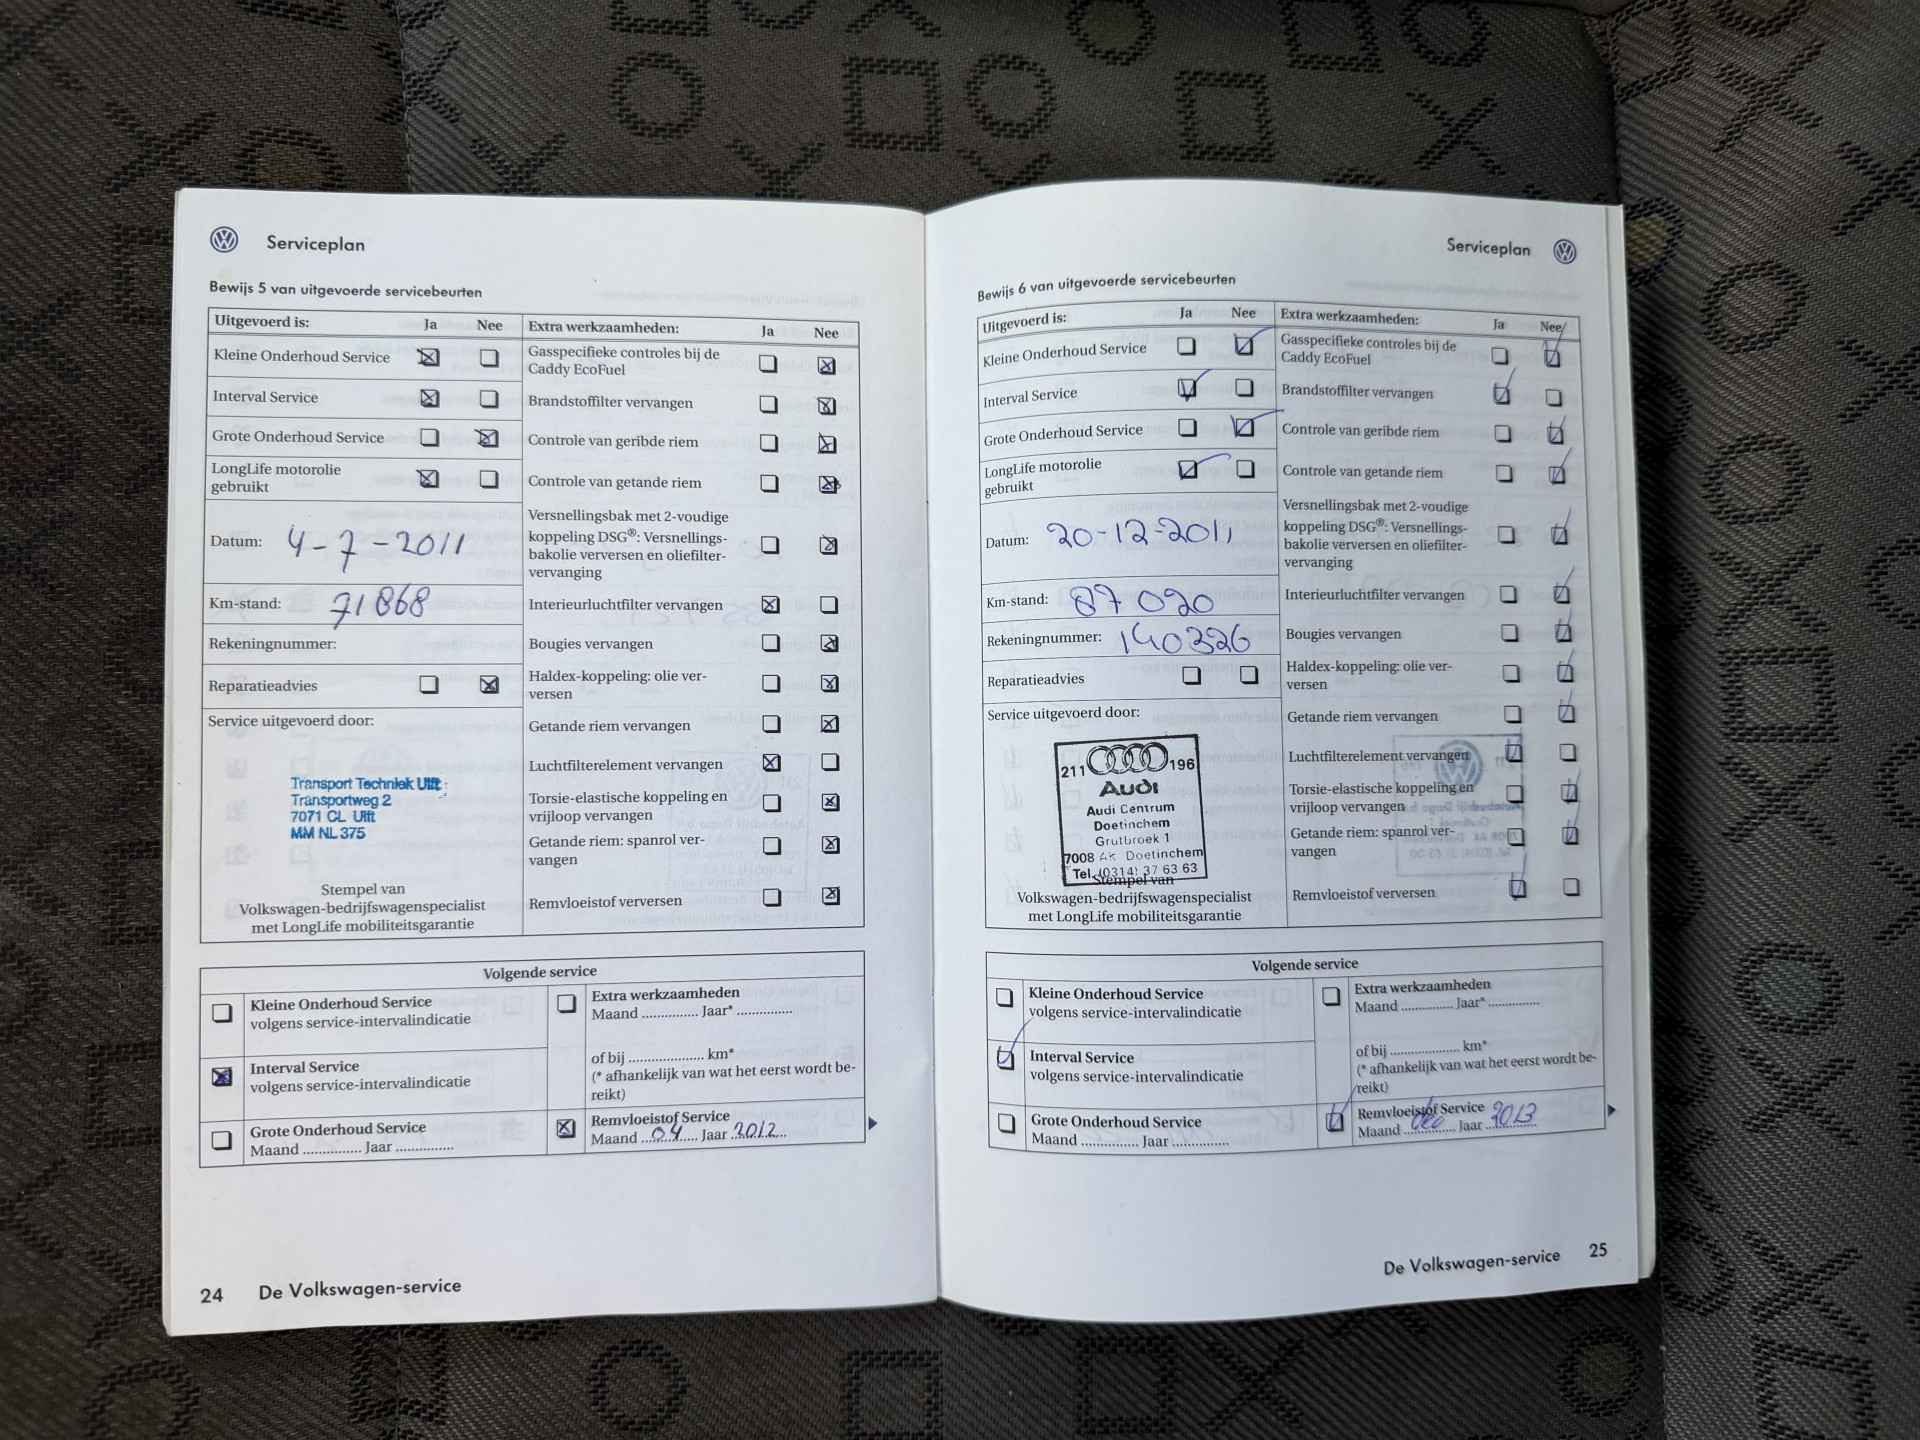 Serviceplan
Bewijs 5 van uitgevoerde servicebeurten
Uitgevoerd is: Ja Nee
Kleine Onderhoud Service
Interval Service
Grote Onderhoud Service
LongLife motorolie
gebruikt
Datum: 4-7-2011
Km-stand: 71868
Rekeningnummer:
Reparatieadvies
Service uitgevoerd door:
Transport Techniek Ulft
Transportweg 2
7071 CL Ulft
MM NL 375
Stempel van
Volkswagen-bedrijfswagenspecialist
met LongLife mobiliteitsgarantie
Extra werkzaamheden: Ja Nee
Gasspecifieke controles bij de
Caddy EcoFuel
Brandstoffilter vervangen
Controle van geribde riem
Controle van getande riem
Versnellingsbak met 2-voudige
koppeling DSG®: Versnellings-
bakolie verversen en oliefilter-
vervanging
Interieurluchtfilter vervangen
Bougies vervangen
Haldex-koppeling: olie ver-
versen
Getande riem vervangen
Luchtfilterelement vervangen
Torsie-elastische koppeling en
vrijloop vervangen
Getande riem: spanrol ver-
vangen
Remvloeistof verversen
Volgende service
Kleine Onderhoud Service
volgens service-intervalindicatie
Interval Service
volgens service-intervalindicatie
Grote Onderhoud Service
Maand ............... Jaar ...............
Extra werkzaamheden
Maand ............... Jaar* ...............
of bij .................... km*
(* afhankelijk van wat het eerst wordt be-
reikt)
Remvloeistof Service
Maand 04 Jaar 2012
24 De Volkswagen-service
Serviceplan
Bewijs 6 van uitgevoerde servicebeurten
Uitgevoerd is: Ja Nee
Kleine Onderhoud Service
Interval Service
Grote Onderhoud Service
LongLife motorolie
gebruikt
Datum: 20-12-2011
Km-stand: 87020
Rekeningnummer: 140326
Reparatieadvies
Service uitgevoerd door:
211 196
Audi
Audi Centrum
Doetinchem
Grutbroek 1
7008 AK Doetinchem
Tel. (0314) 37 63 63
Stempel van
Volkswagen-bedrijfswagenspecialist
met LongLife mobiliteitsgarantie
Extra werkzaamheden: Ja Nee
Gasspecifieke controles bij de
Caddy EcoFuel
Brandstoffilter vervangen
Controle van geribde riem
Controle van getande riem
Versnellingsbak met 2-voudige
koppeling DSG®: Versnellings-
bakolie verversen en oliefilter-
vervanging
Interieurluchtfilter vervangen
Bougies vervangen
Haldex-koppeling: olie ver-
versen
Getande riem vervangen
Luchtfilterelement vervangen
Torsie-elastische koppeling en
vrijloop vervangen
Getande riem: spanrol ver-
vangen
Remvloeistof verversen
Volgende service
Kleine Onderhoud Service
volgens service-intervalindicatie
Interval Service
volgens service-intervalindicatie
Grote Onderhoud Service
Maand ............... Jaar ...............
Extra werkzaamheden
Maand ............... Jaar* ...............
of bij .................... km*
(* afhankelijk van wat het eerst wordt be-
reikt)
Remvloeistof Service
Maand dec Jaar 2013
De Volkswagen-service 25